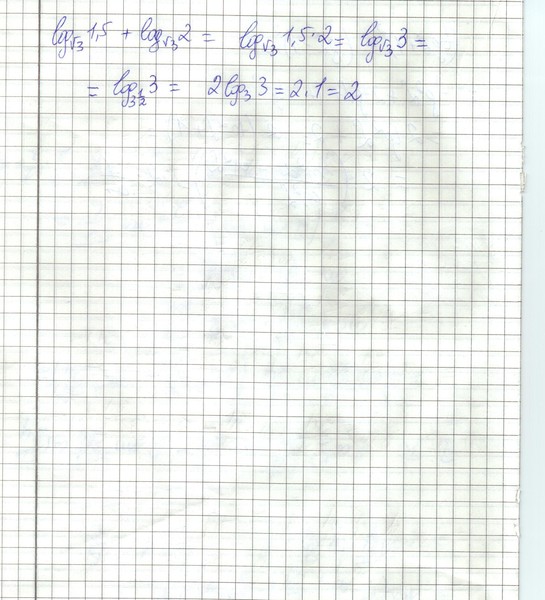 log_√3 1,5 + log_√3 2 = log_√3 1,5·2 = log_√3 3 =
= log_3^(1/2) 3 = 2 log_3 3 = 2·1 = 2